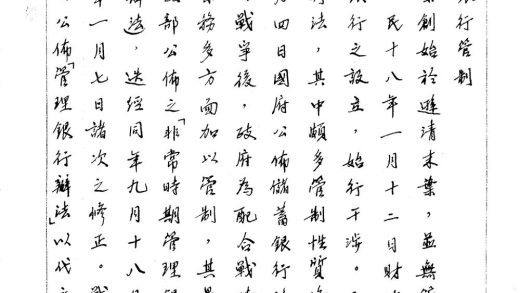 行管制
創始於遜清末葉，並無管
民十八年一月十二日財
行之設立，始行干涉。
行法，其中頗多管制性質
四日國府公佈儲蓄銀行
戰爭後，政府為配合戰
務多方面加以管制，其
部公佈之「非常時期管理
辦法，迭經同年九月十八
年一月七日諸次之修正。
公佈「管理銀行辦法」以代